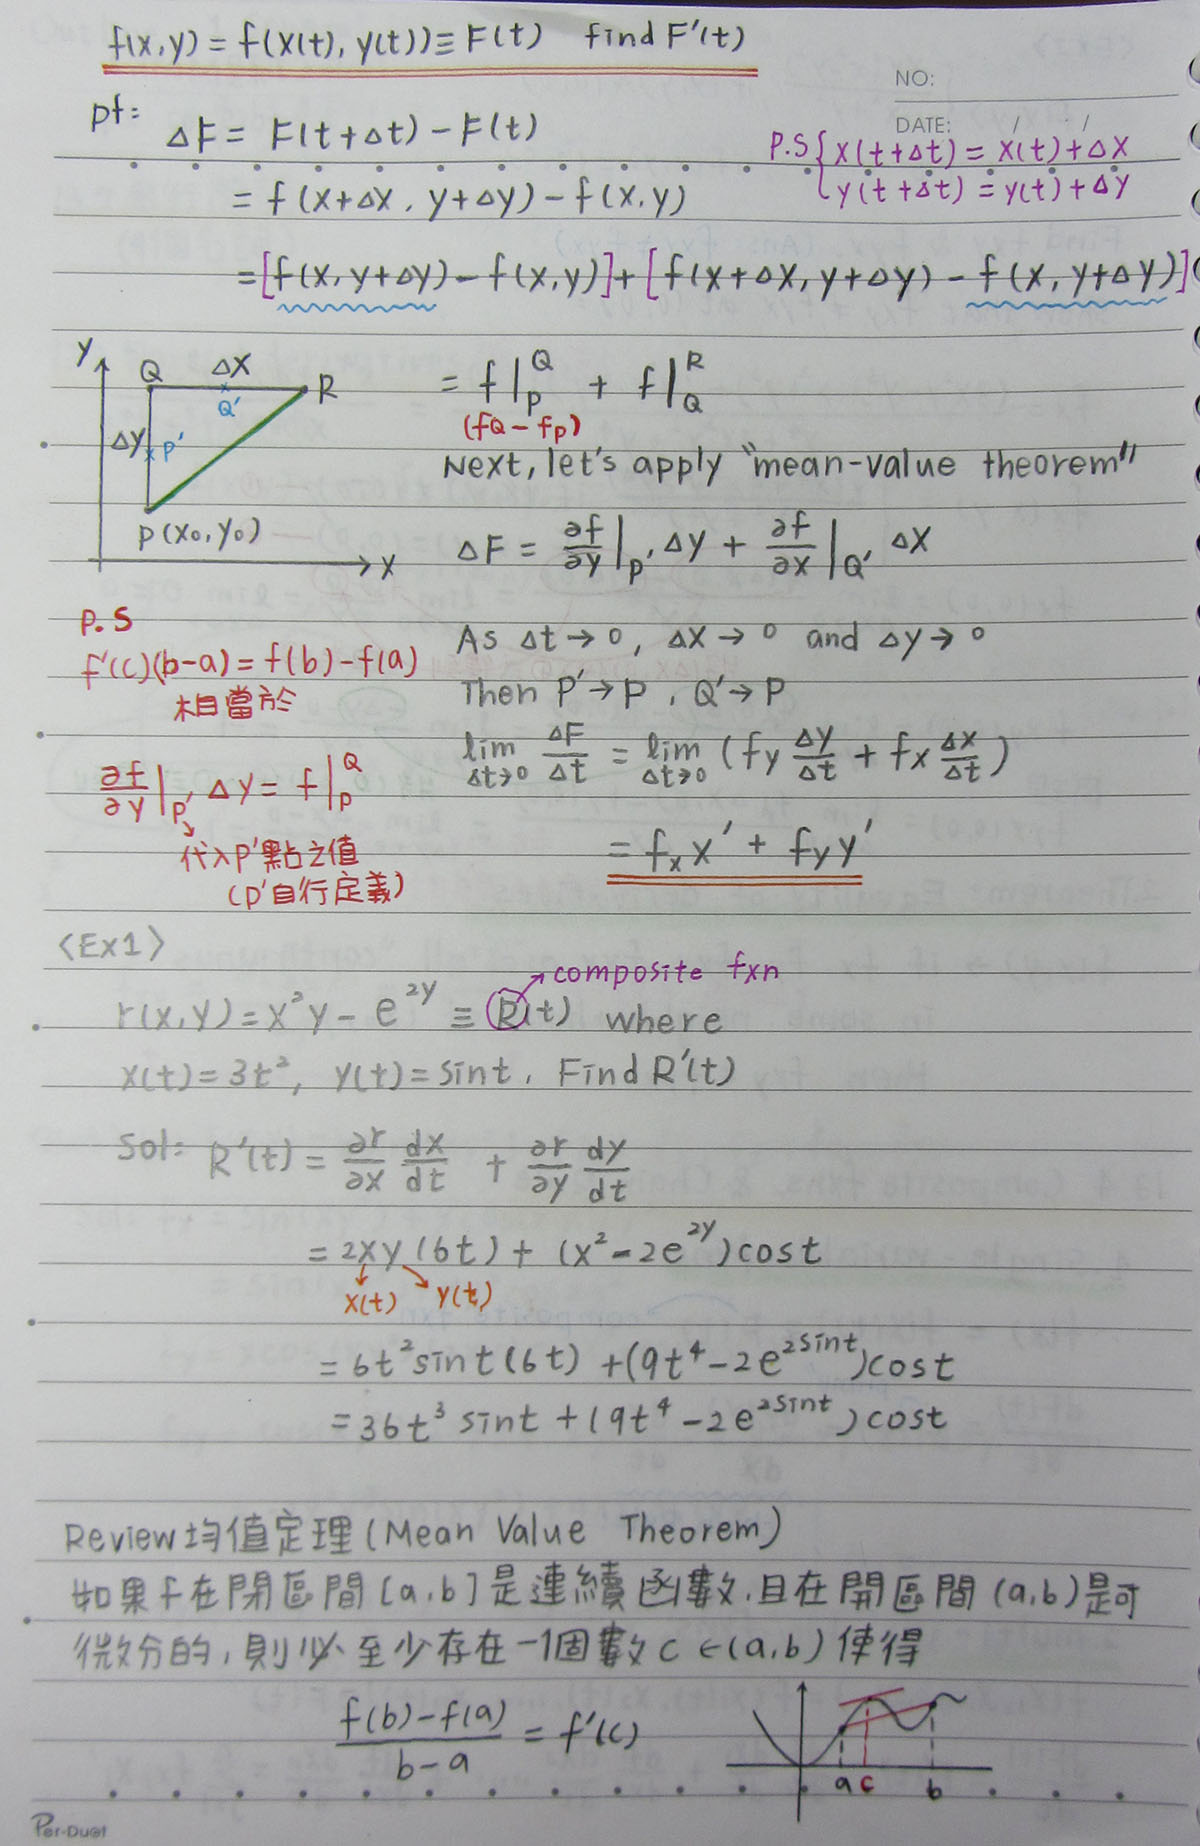 f(x,y) = f(x(t), y(t)) ≡ F(t) find F'(t)
NO:
DATE: / /
pf:
ΔF = F(t+Δt) - F(t)
P.S { x(t+Δt) = x(t)+Δx
y(t+Δt) = y(t)+Δy
= f(x+Δx, y+Δy) - f(x,y)
= [f(x, y+Δy) - f(x,y)] + [f(x+Δx, y+Δy) - f(x, y+Δy)]
y Q Δx R
Q'
Δy P'
P(x₀, y₀)
x
= f|_P^Q + f|_Q^R
(fQ - fP)
Next, let's apply "mean-value theorem"
ΔF = ∂f/∂y|_P' Δy + ∂f/∂x|_Q' Δx
P.S
f'(c)(b-a) = f(b)-f(a)
相當於
∂f/∂y|_P' Δy = f|_P^Q
代入P'點之值
(P'自行定義)
As Δt→0, Δx→0 and Δy→0
Then P'→P, Q'→P
lim Δt→0 ΔF/Δt = lim Δt→0 (fy Δy/Δt + fx Δx/Δt)
= fx x' + fy y'
〈Ex1〉
composite fxn
r(x,y) = x²y - e^2y ≡ R(t) where
x(t) = 3t², y(t) = sint, Find R'(t)
Sol: R'(t) = ∂r/∂x dx/dt + ∂r/∂y dy/dt
= 2xy(6t) + (x² - 2e^2y)cost
x(t) y(t)
= 6t²sint(6t) + (9t⁴ - 2e^2sint)cost
= 36t³ sint + (9t⁴ - 2e^2sint)cost
Review 均值定理 (Mean Value Theorem)
如果f在閉區間[a,b]是連續函數,且在開區間(a,b)是可
微分的,則必至少存在一個數c∈(a,b)使得
f(b)-f(a)/b-a = f'(c)
a c b
Per-Duet